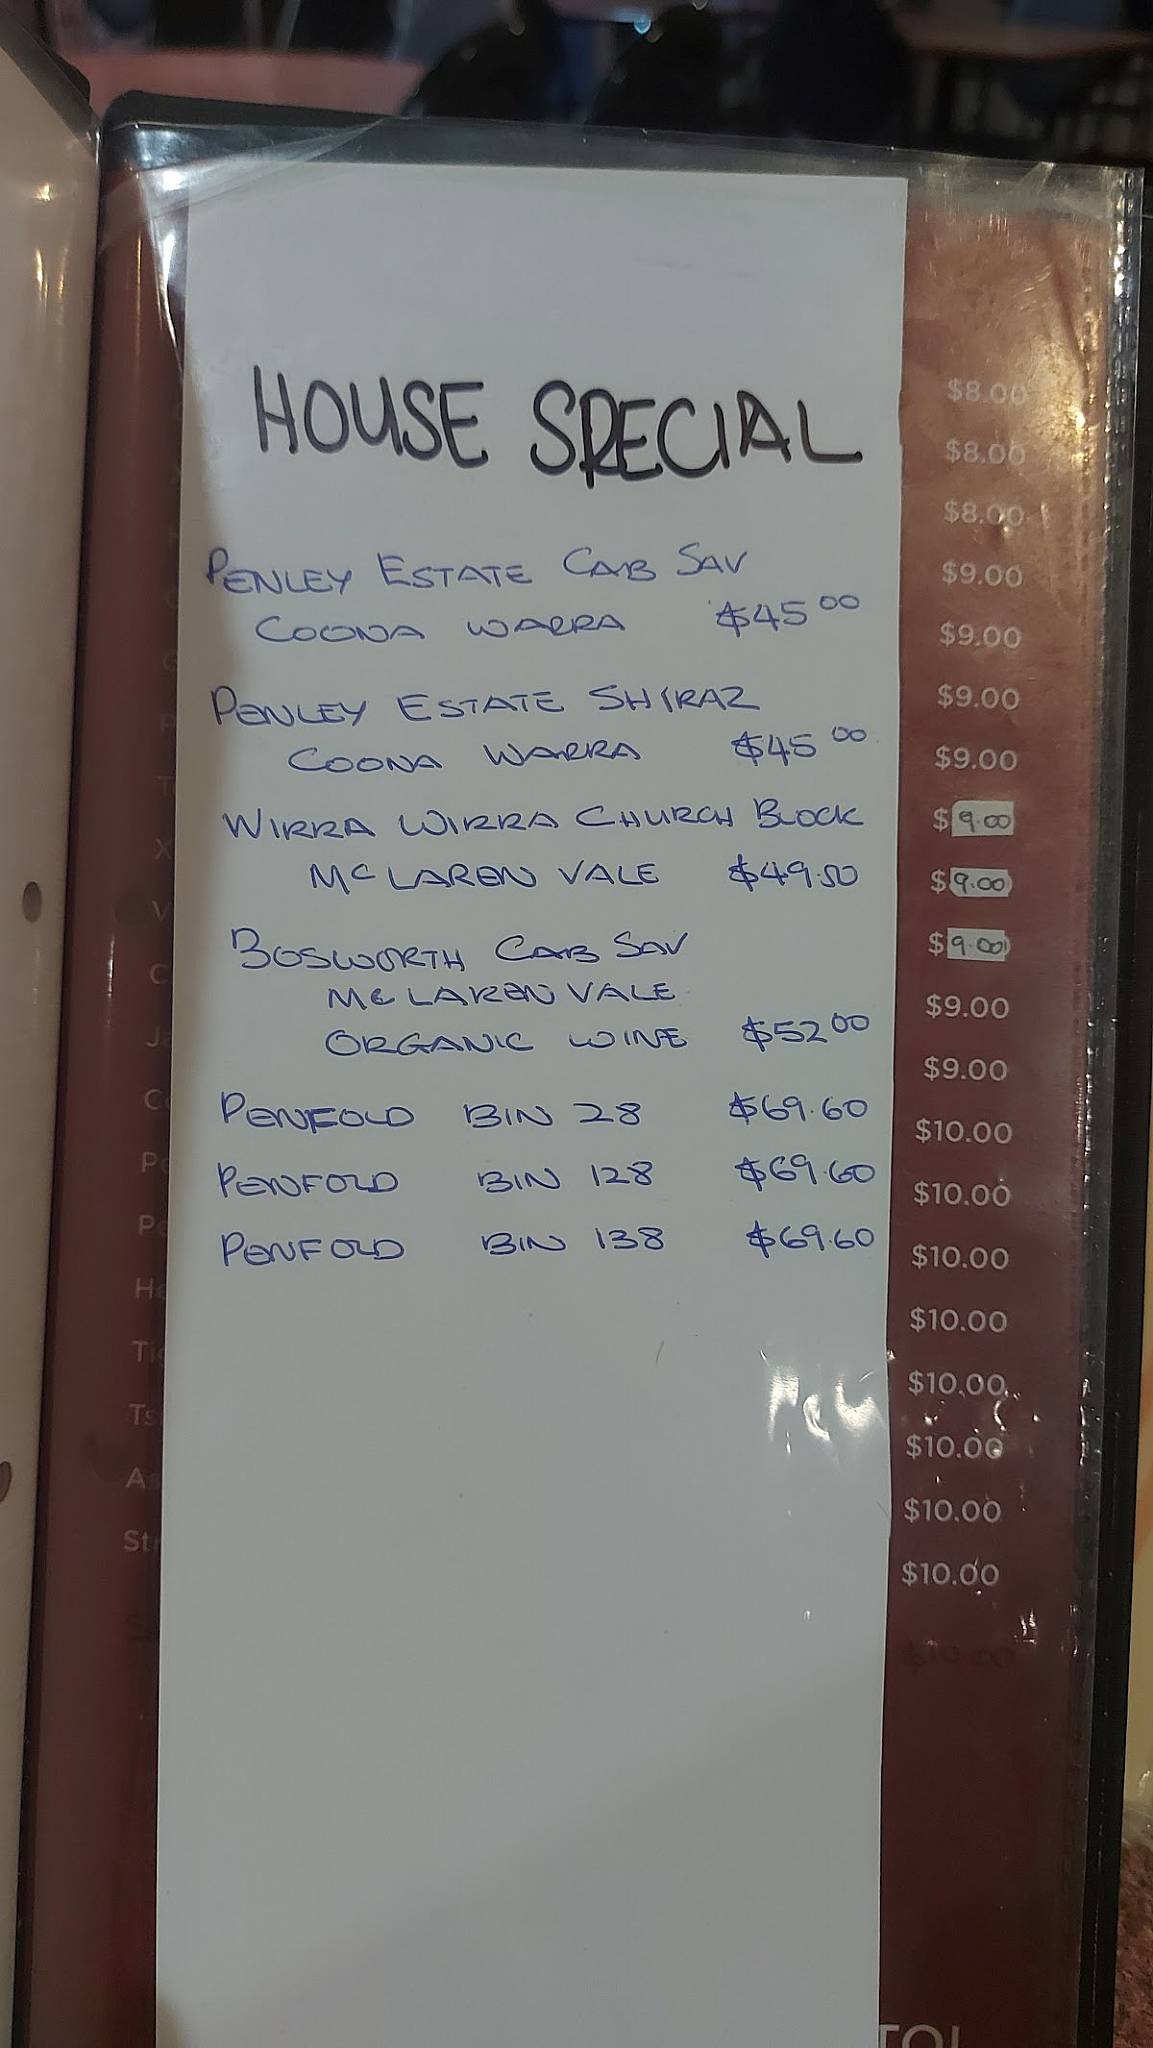 HOUSE SPECIAL
PENLEY ESTATE CAB SAV
COONA WARRA $45 00
PENLEY ESTATE SHIRAZ
COONA WARRA $45 00
WIRRA WIRRA CHURCH BLOCK
MC LAREN VALE $49.50
BOSWORTH CAB SAV
MC LAREN VALE
ORGANIC WINE $52 00
PENFOLD BIN 28 $69.60
PENFOLD BIN 128 $69.60
PENFOLD BIN 138 $69.60
$8.00
$8.00
$8.00
$9.00
$9.00
$9.00
$9.00
$9.00
$9.00
$9.00
$9.00
$9.00
$10.00
$10.00
$10.00
$10.00
$10.00
$10.00
$10.00
$10.00
$10.00